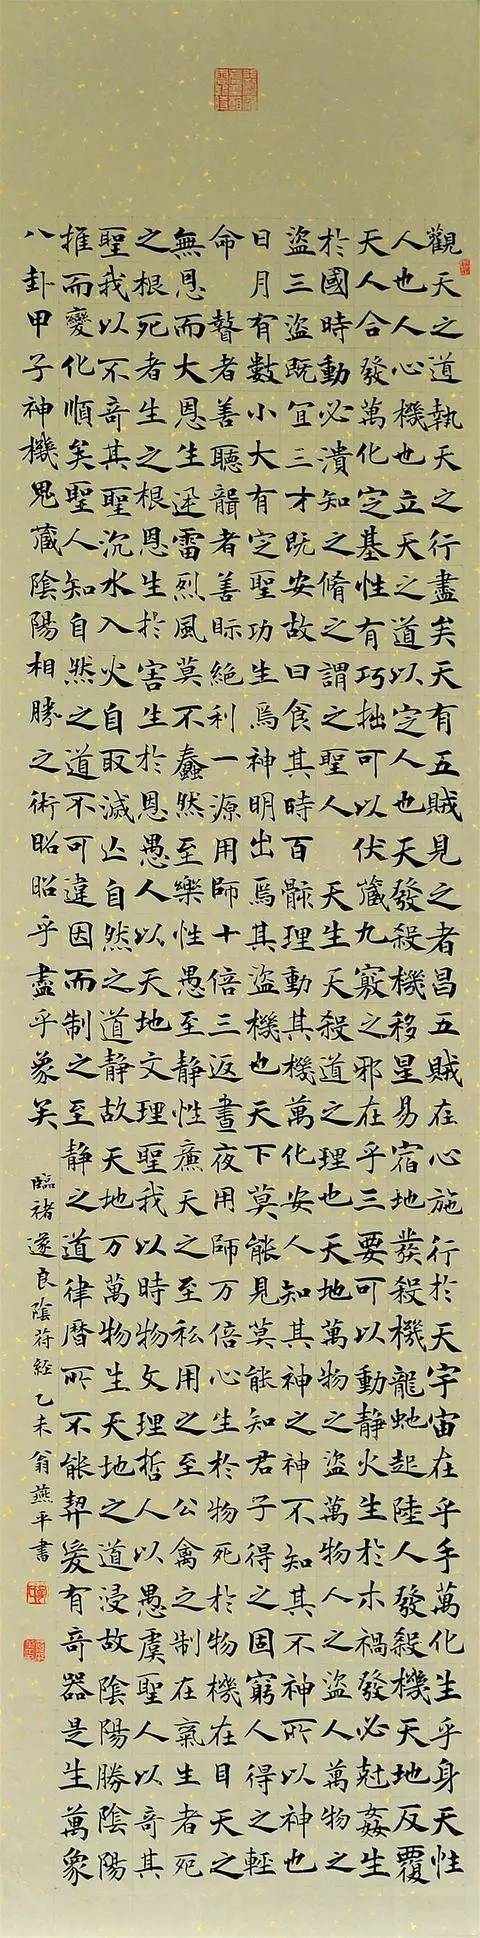 觀天之道執天之行盡矣天有五賊見之者昌五賊在心施行於天宇宙在乎手萬化生乎身天性
人也人心機也立天之道以定人也天發殺機移星易宿地發殺機龍虵起陸人發殺機天地反覆
天人合發萬化定基性有巧拙可以伏藏九竅之邪在乎三要可以動靜火生於木禍發必尅姦生
於國時動必潰知之脩之謂之聖人 天生天殺道之理也天地萬物之盜萬物人之盜人萬物之
盜三盜既宜三才既安故曰食其時百骸理動其機萬化安人知其神之神不知其不神所以神也
日月有數小大有定聖功生焉神明出焉其盜機也天下莫能見莫能知君子得之固窮人得之輕
命 瞽者善聽聾者善眎絕利一源用師十倍三返晝夜用師万倍心生於物死於物機在目天之
無恩而大恩生迅雷烈風莫不蠢然至樂性愚至靜性廉天之至私用之至公禽之制在氣生者死
之根死者生之根恩生於害生於恩愚人以天地文理聖我以時物文理哲人以愚虞聖人以奇其
聖我以不奇其聖沉水入火自取滅亡自然之道靜故天地万萬物生天地之道浸故陰陽勝陰陽
推而變化順矣聖人知自然之道不可違因而制之至靜之道律曆所不能契爰有奇器是生萬象
八卦甲子神機鬼藏陰陽相勝之術昭昭乎盡乎象矣
臨褚遂良陰符經乙未翁燕平書